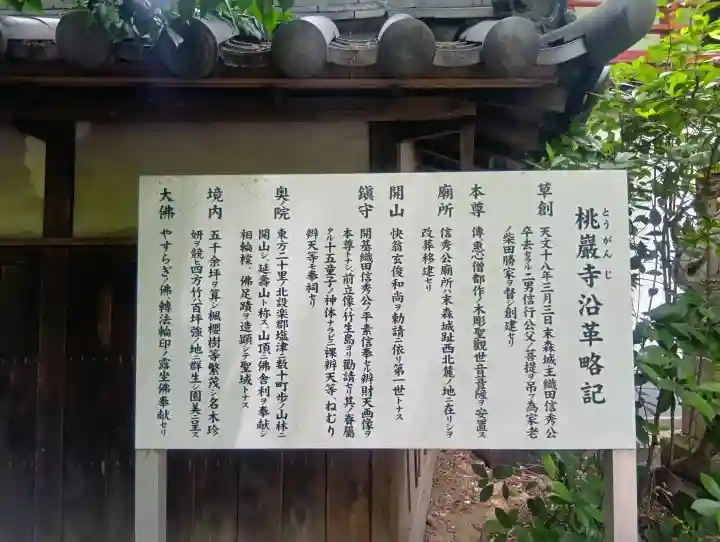 とうがんじ
桃巖寺沿革略記
草創 天文十八年三月三日末森城主織田信秀公
卒去セラルニ二男信行公父ノ菩提ヲ弔フ為家老
ノ柴田勝家ヲ督シ創建セリ
本尊 傳恵心僧都作ノ木彫聖観世音菩薩ヲ安置ス
廟所 信秀公廟所ハ末森城趾西北麓ノ地ニ在リシヲ
改葬移建セリ
開山 快翁玄俊和尚ヲ勅請ニ依リ第一世トナス
鎮守 開基織田信秀公ノ平素信奉セル辨財天画像ヲ
本尊トナシ前立像ハ竹生島ヨリ勧請セリ其ノ眷屬
タル十五童子ノ神体ナラビニ裸辨天等ねむり
辨天等モ奉祠セリ
奥ノ院 東方二十里ノ北設楽郡塩津ニ数十町歩ノ山林ニ
開山シ延壽山ト称ス山頂ニ佛舎利ヲ奉献シ
相輪樘、佛足蹟ヲ造顕シテ聖域トナス
境内 五千余坪ヲ算シ楓櫻樹等繁茂シ名木珍
妍ヲ競ヒ四方竹ハ百坪強ノ地ニ群生シ園美ニ呈ス
大佛 やすらぎノ佛 轉法輪印ノ露坐佛奉献セリ